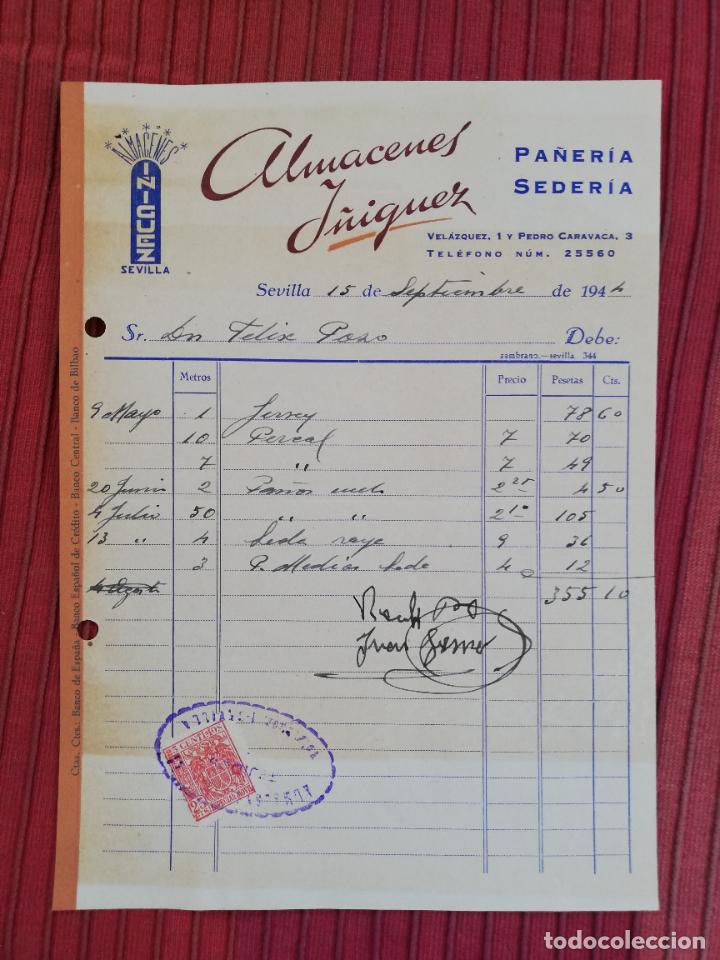 ALMACENES
IÑIGUEZ
SEVILLA
Almacenes
Iñiguez
PAÑERÍA
SEDERÍA
VELÁZQUEZ, 1 Y PEDRO CARAVACA, 3
TELÉFONO NÚM. 25560
Sevilla 15 de Septiembre de 1944
Sr. Dn Felix Pozo Debe:
zambrano.—sevilla 344
Metros Precio Pesetas Cts.
9 Mayo 1 Jersey 78 60
10 Percal 7 70
7 " 7 49
20 Junio 2 Paños 2 25 4 50
4 Julio 50 " " 2 10 105
13 " 4 Seda raya 9 36
3 P. Medias Seda 4 12
4 Agosto 355 10
Juan
Ctas. Ctes.: Banco de España - Banco Español de Crédito - Banco Central - Banco de Bilbao
25 CENTIMOS
25
todocoleccion
todocoleccion.net